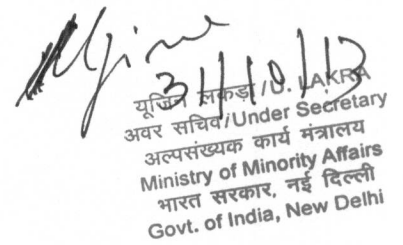 31/10/13
यूजिन लकड़ा/U. LAKRA
अवर सचिव/Under Secretary
अल्पसंख्यक कार्य मंत्रालय
Ministry of Minority Affairs
भारत सरकार, नई दिल्ली
Govt. of India, New Delhi